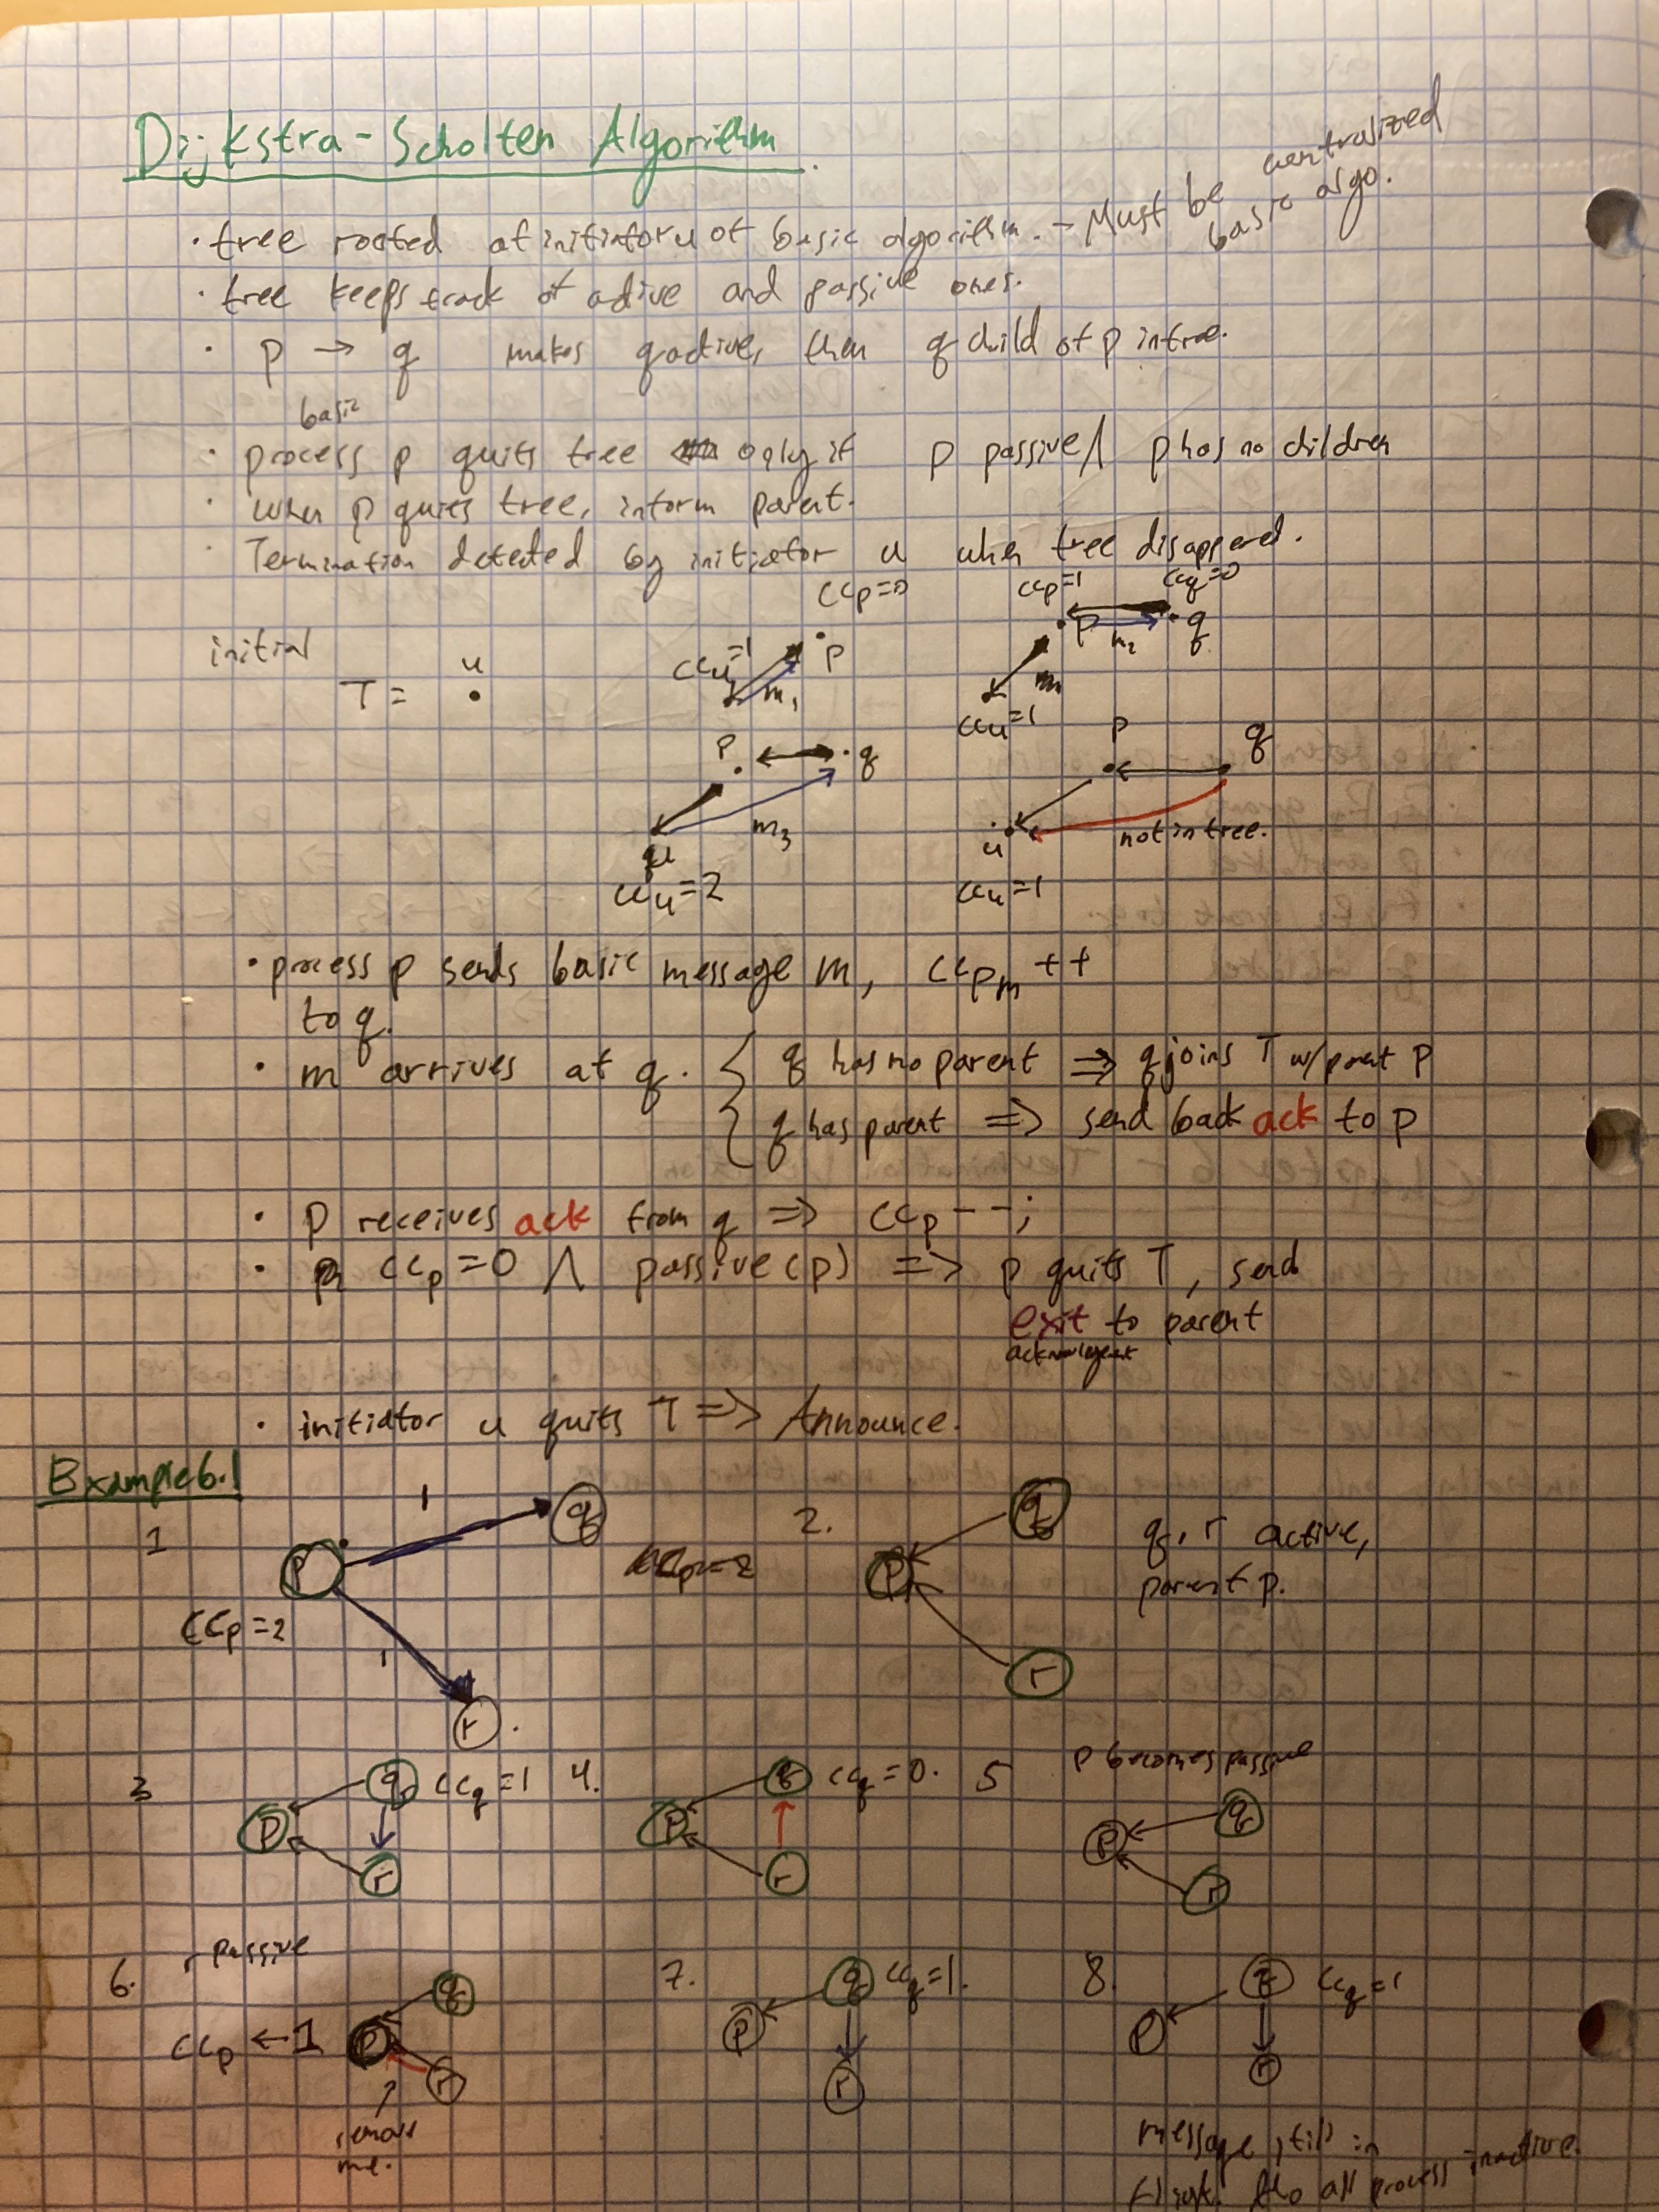 Dijkstra-Scholten Algorithm
· tree rooted at initiator u of basic algorithm. - Must be centralized
basic algo.
· tree keeps track of active and passive ones.
· p → q makes q active, then q child of p in tree.
basic
· process p quits tree only if p passive ∧ p has no children
· when p quits tree, inform parent.
· Termination detected by initiator u when tree disappered.
initial
T = u
ccp=0
ccu=1 m1 p
ccp=1 ccq=0
p m2 q
m1
ccu=1
p q
m3
u
ccu=2
p q
u not in tree.
ccu=1
· process p sends basic message m, ccpm ++
to q.
· m arrives at q. { q has no parent ⇒ q joins T w/ parent p
{ q has parent ⇒ send back ack to p
· p receives ack from q ⇒ ccp--;
· ccp=0 ∧ passive(p) ⇒ p quits T, send
exit to parent
· initiator u quits T ⇒ Announce.
Example 6.1
1 p 1 q
ccp=2
1
r
2. q
p
r
q, r active,
parent p.
3 q ccq=1
p
r
4. q ccq=0.
p
r
5 p becomes passive
q
p
r
6. r passive
q
ccp ←1 p
r
me.
7. q ccq=1.
p
r
8. q ccq=1
p
r
message still in
all process inactive.